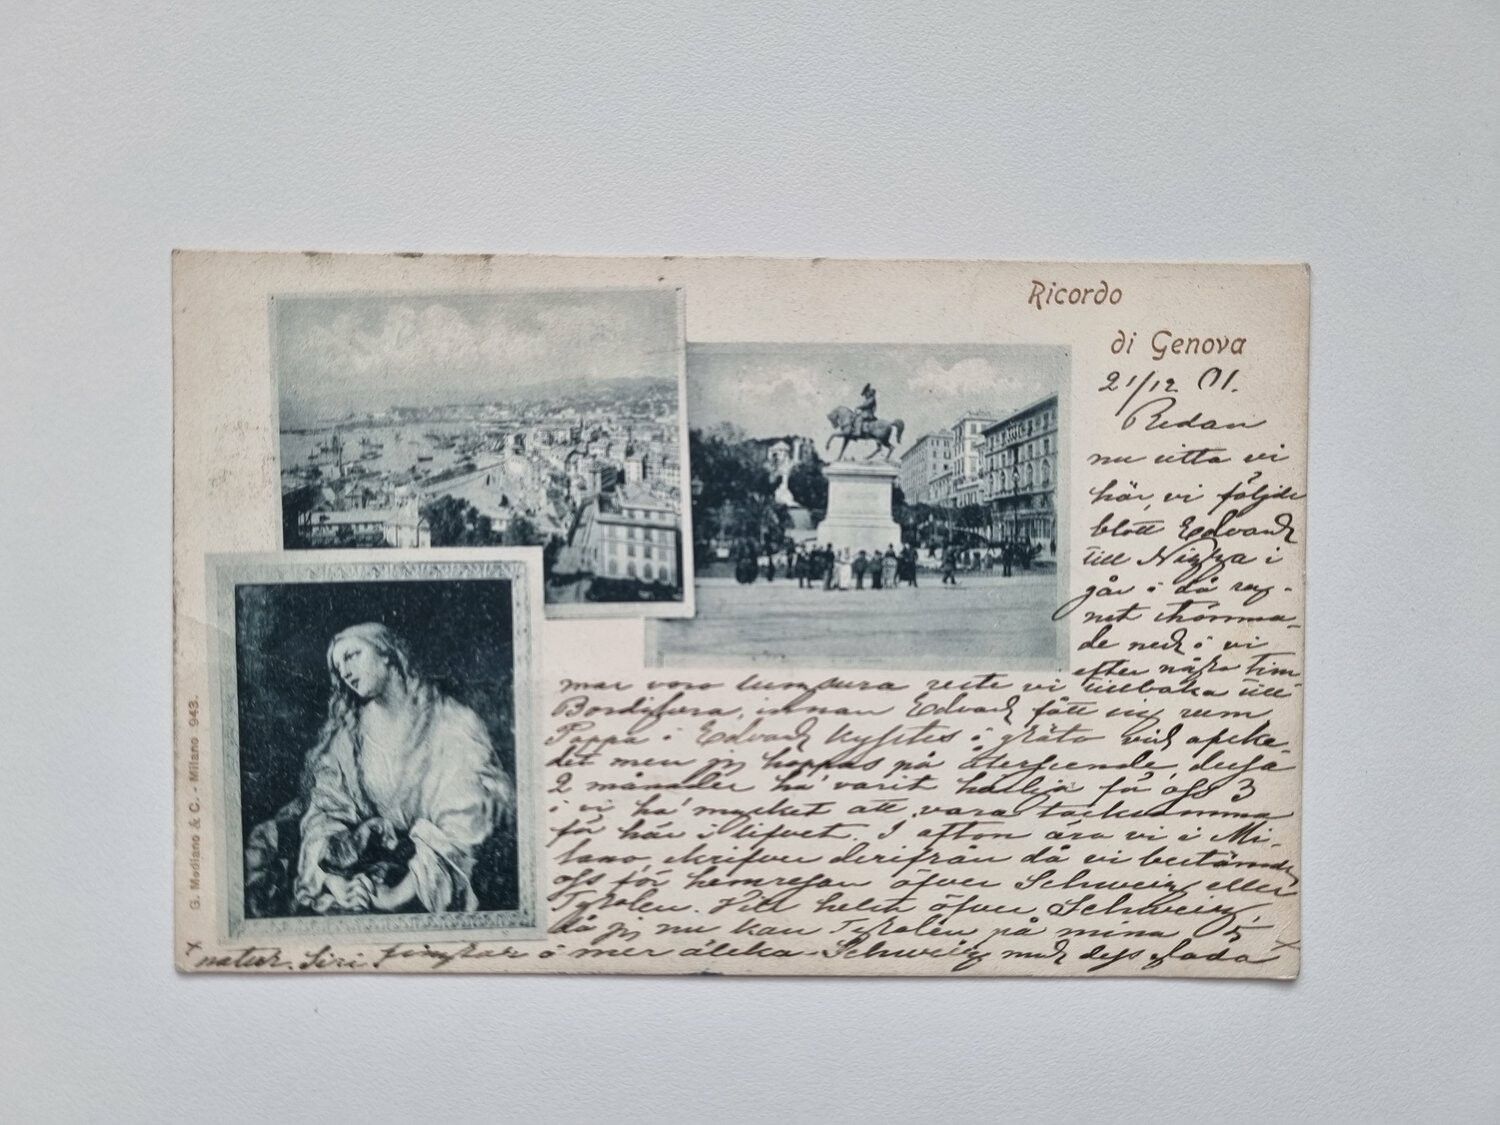 Ricordo
di Genova
21/12 01.
Redan
nu sitta vi
här, vi följde
blott Edvard
till Nizza i
går o då reg-
net strömma-
de ned o vi
efter några tim-
mar voro lumpsura reste vi tillbaka till
Bordighera, innan Edvard fått sig rum
Pappa o Edvard kysstes o gräto vid afske-
det men jag hoppas på återseende, dessa
2 månader ha' varit härliga för oss 3
o vi ha' mycket att vara tacksamma
för här i lifvet. I afton äro vi i Mi-
lano, skrifver derifrån då vi bestämde
oss för hemresan öfver Schweiz eller
Tyrolen. Vill helst öfver Schweiz,
då jag nu kan Tyrolen på mina 5
x fingrar o mer älska Schweiz med dess glada x
natur. Siri
G. Modiano & C. - Milano - 943.